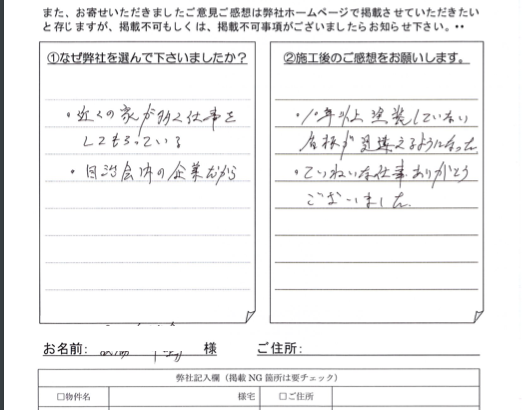 また、お寄せいただきましたご意見ご感想は弊社ホームページで掲載させていただきたい
と存じますが、掲載不可もしくは、掲載不可事項がございましたらお知らせ下さい。••
①なぜ弊社を選んで下さいましたか？
・近くの家が多く仕事を
してもらっている
・自治会内の企業だから
②施工後のご感想をお願いします。
・10年以上塗装していない
屋根が見違えるようになった
・ていねいな仕事ありがとう
ございました。
お名前: 様 ご住所:
弊社記入欄（掲載 NG 箇所は要チェック）
□物件名 様宅 □ご住所